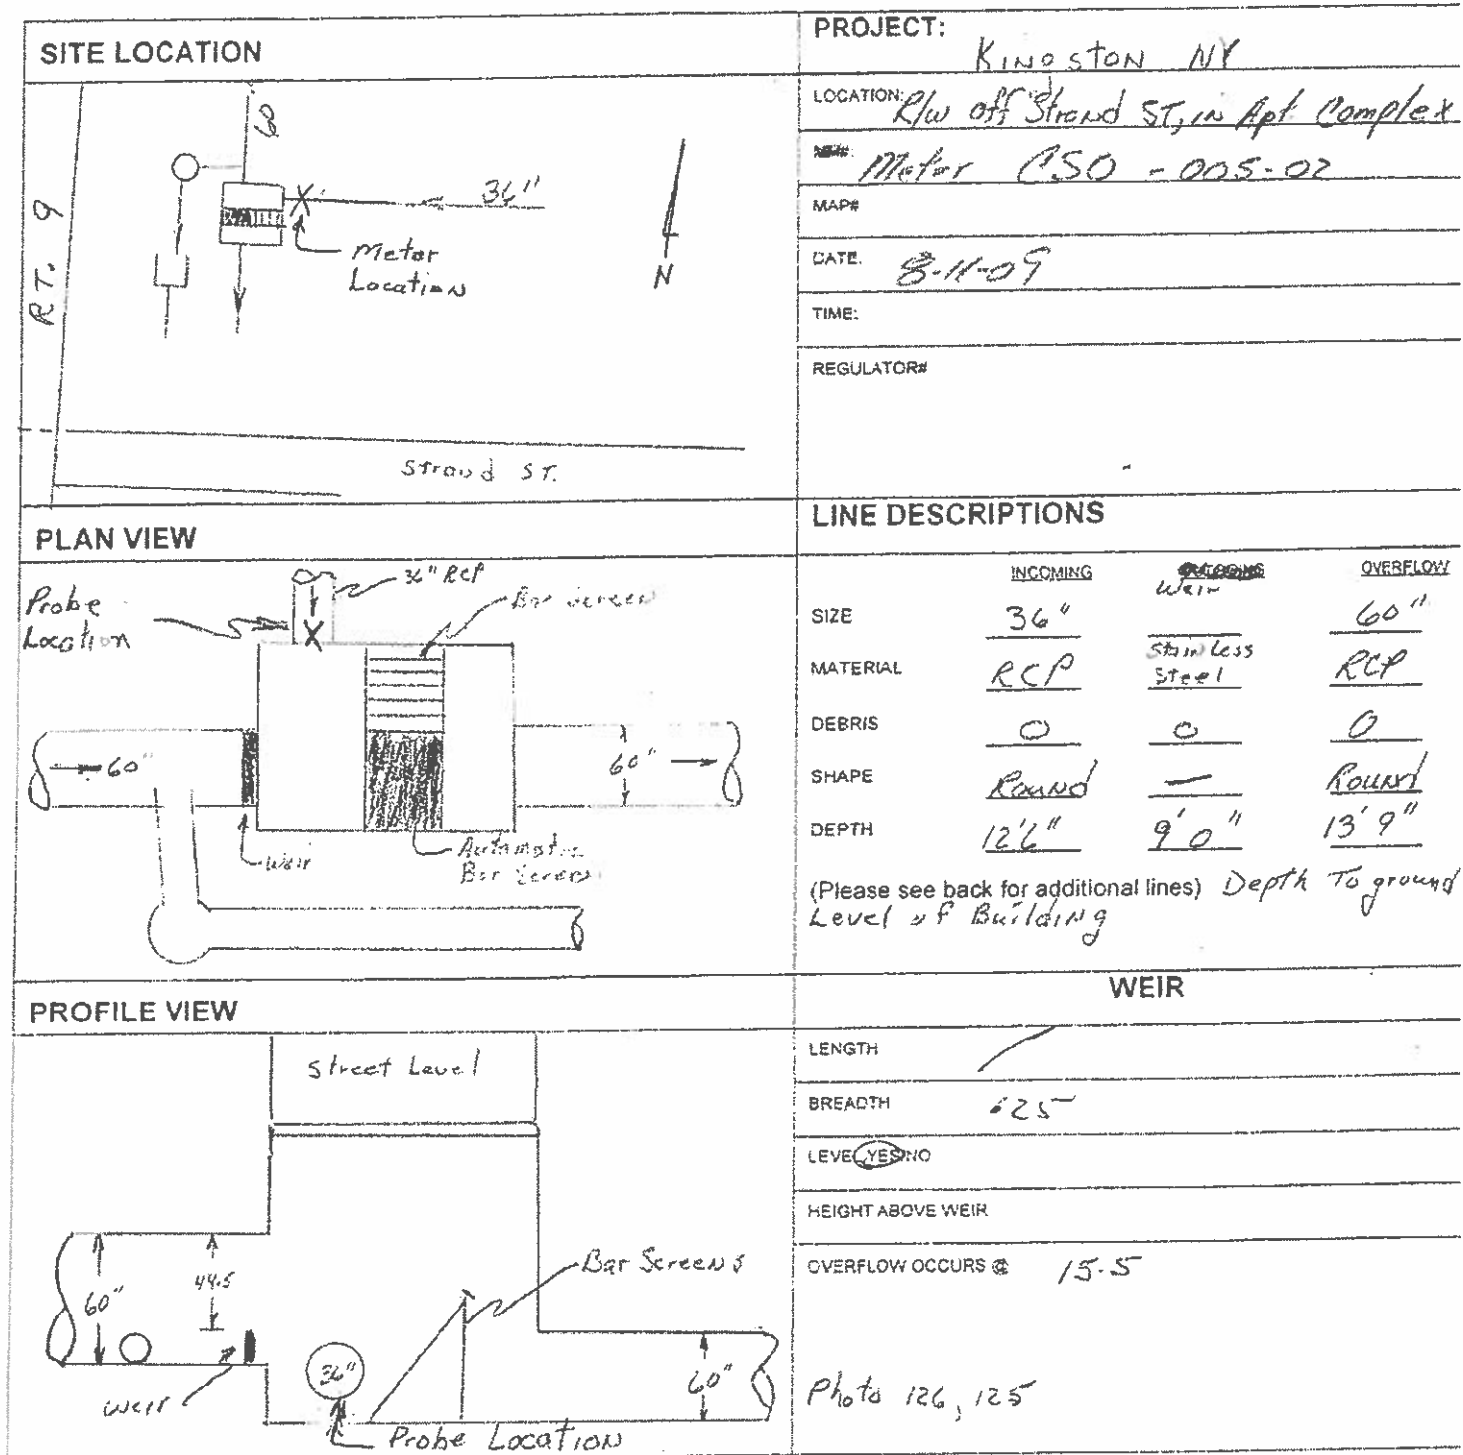 SITE LOCATION
60
36"
RT. 9
Meter
Location
N
Strand ST.
PROJECT:
Kingston NY
LOCATION: R/W off Strand ST, in Apt Complex
Meter CSO - 005-02
MAP#
DATE: 8-11-09
TIME:
REGULATOR#
PLAN VIEW
36" RCP
Probe
Location
Bar Screen
60"
60"
Weir
Automatic
Bar Screen
LINE DESCRIPTIONS
INCOMING OVERFLOW
Weir
SIZE 36" 60"
Stainless
MATERIAL RCP Steel RCP
DEBRIS 0 0 0
SHAPE Round — Round
DEPTH 12'6" 9'0" 13'9"
(Please see back for additional lines) Depth To ground
Level of Building
PROFILE VIEW
Street Level
Bar Screens
44.5
60"
36"
60"
weir
Probe Location
WEIR
LENGTH
BREADTH .25
LEVEL YES/NO
HEIGHT ABOVE WEIR
OVERFLOW OCCURS @ 15.5
Photo 126, 125